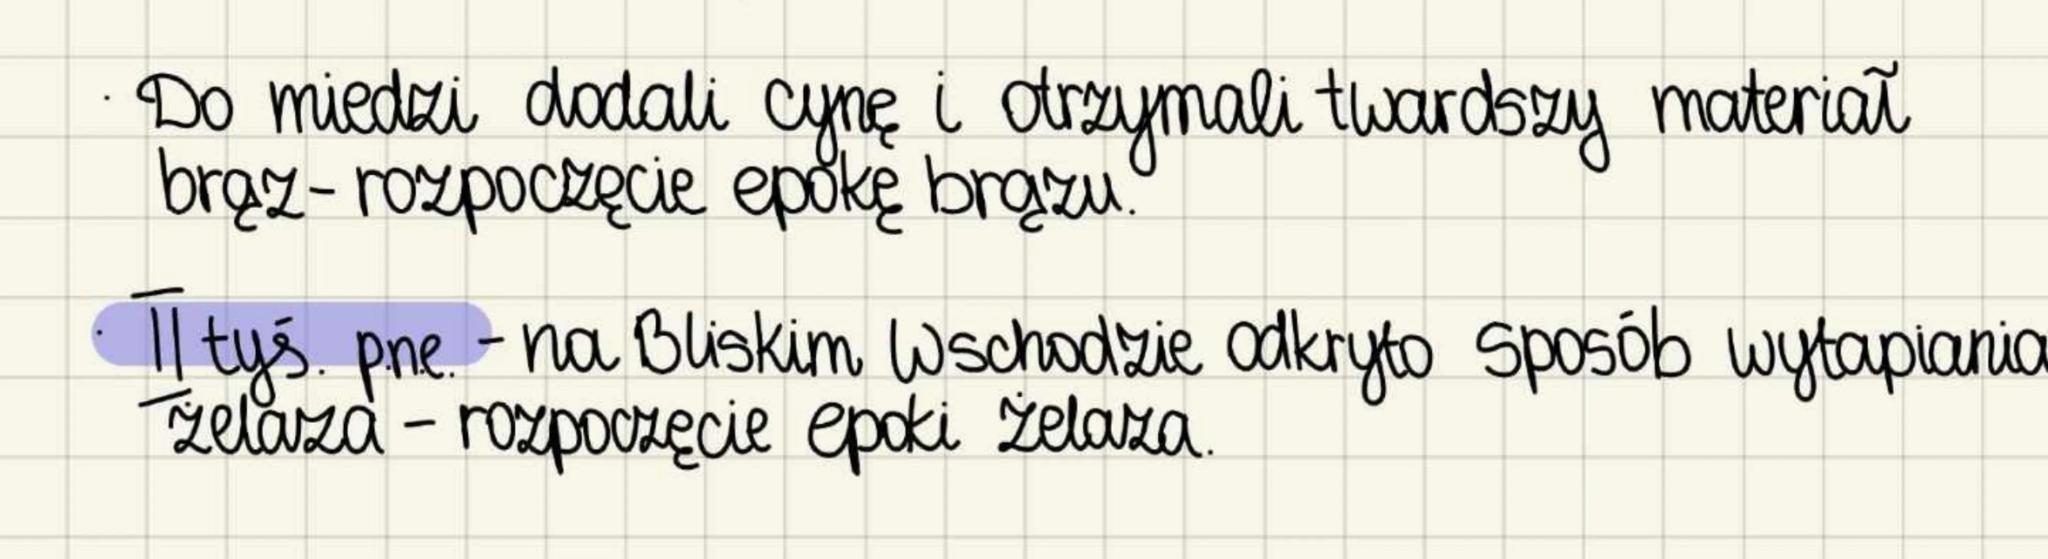 · Do miedzi dodali cynę i otrzymali twardszy materiał
brąz - rozpoczęcie epokę brązu.
· II tyś. p.n.e. - na Bliskim Wschodzie odkryto sposób wytapiania
żelaza - rozpoczęcie epoki żelaza.